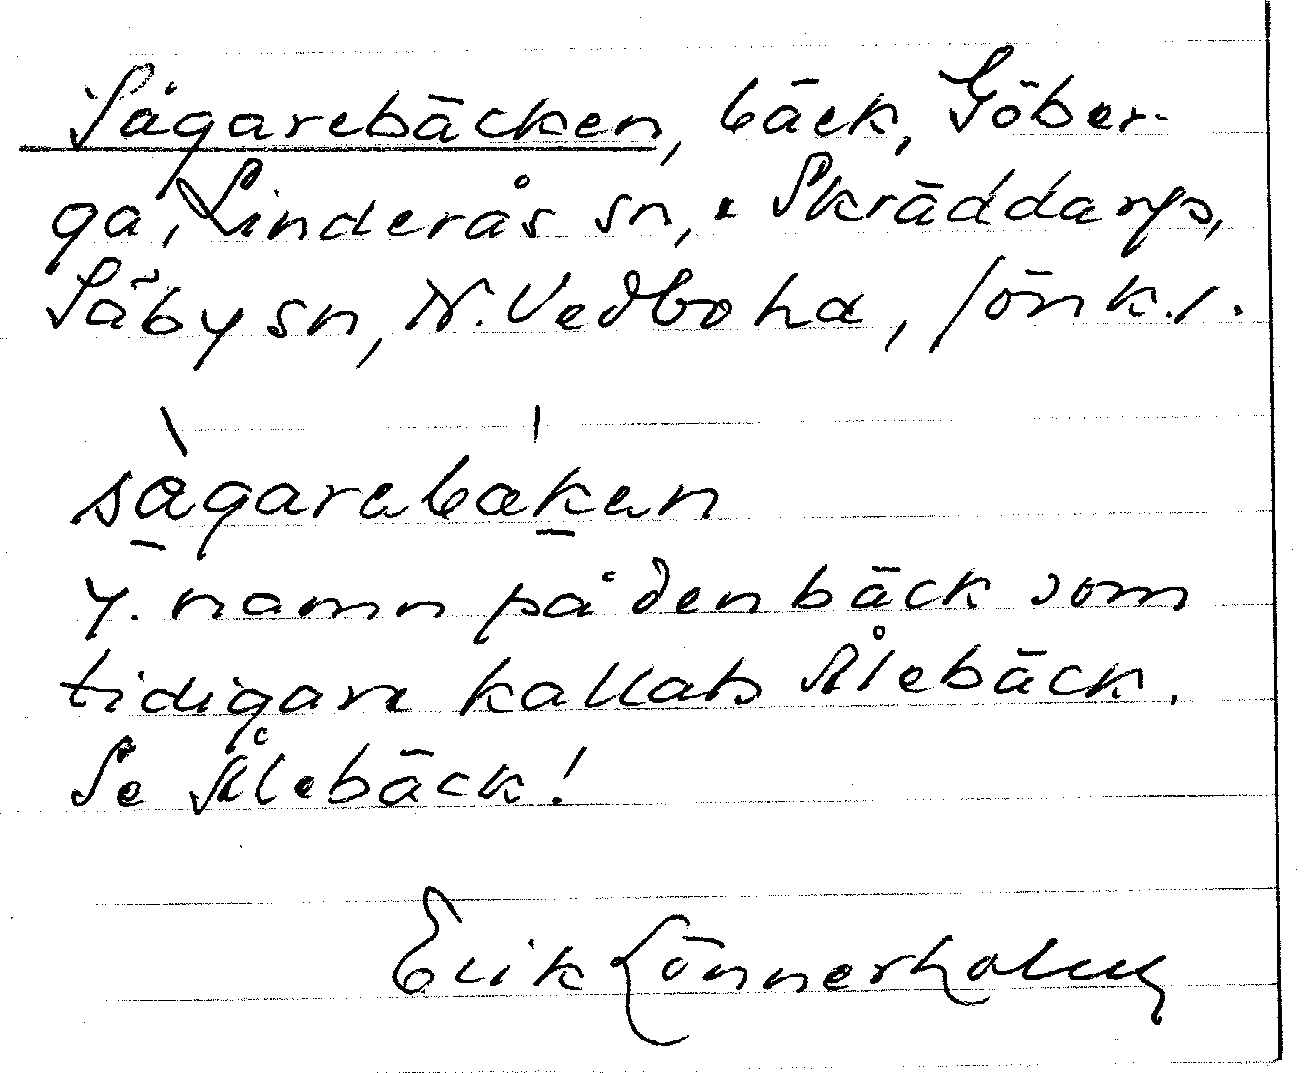 Sågarebäcken, bäck, Göber-
ga, Linderås sn, Skräddarp,
Säby sn, N. Vedbo hd, Jönk. l.
sågarebäken
y. namn på den bäck som
tidigare kallats Ålebäck.
Se Ålebäck!
Erik Lönnerholm